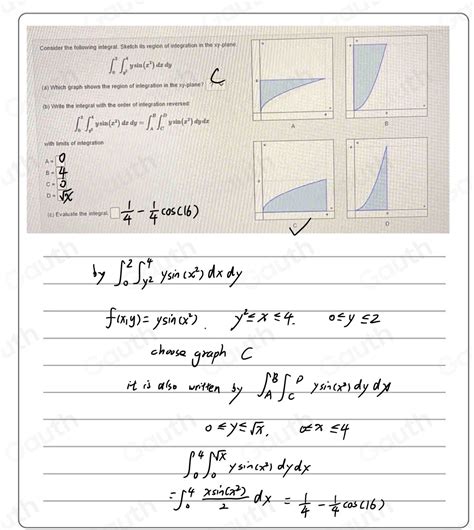 Consider the following integral. Sketch its region of integration in the xy-plane.
∫₀² ∫_{y²}^4 y sin(x²) dx dy
(a) Which graph shows the region of integration in the xy-plane? C
(b) Write the integral with the order of integration reversed:
∫₀² ∫_{y²}^4 y sin(x²) dx dy = ∫_A^B ∫_C^D y sin(x²) dy dx
with limits of integration
A = 0
B = 4
C = 0
D = √x
(c) Evaluate the integral. 1/4 - 1/4 cos(16)
A
B
C
D
by ∫₀² ∫_{y²}^4 y sin(x²) dx dy
f(x,y) = y sin(x²). y² ≤ x ≤ 4. 0 ≤ y ≤ 2
choose graph C
it is also written by ∫_A^B ∫_C^D y sin(x²) dy dx
0 ≤ y ≤ √x, 0 ≤ x ≤ 4
∫₀⁴ ∫₀^{√x} y sin(x²) dy dx
= ∫₀⁴ x sin(x²)/2 dx = 1/4 - 1/4 cos(16)
Gauth